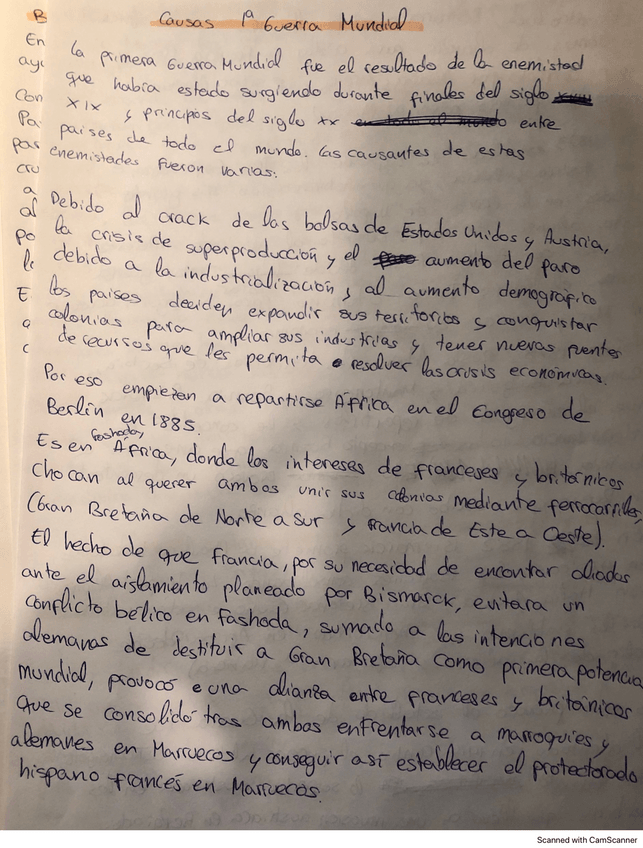 Causas 1ª Guerra Mundial
La primera Guerra Mundial fue el resultado de la enemistad
que había estado surgiendo durante finales del siglo
XIX y principos del siglo XX entre
países de todo el mundo. Las causantes de estas
enemistades fueron varias.
Debido al crack de las bolsas de Estados Unidos y Austria,
la crisis de superproducción y el aumento del paro
debido a la industrialización y al aumento demográfico
los países deciden expandir sus territorios y conquistar
colonias para ampliar sus industrias y tener nuevas fuentes
de recursos que les permita resolver las crisis económicas.
Por eso empiezan a repartirse África en el Congreso de
Berlín en 1885.
Es en Fashoda, África, donde los intereses de franceses y británicos
chocan al querer ambos unir sus colonias mediante ferrocarriles,
(Gran Bretaña de Norte a Sur y Francia de Este a Oeste).
El hecho de que Francia, por su necesidad de encontar aliados
ante el aislamiento planeado por Bismarck, evitara un
conflicto bélico en Fashoda, sumado a las intenciones
alemanas de destituir a Gran Bretaña como primera potencia
mundial, provocó una alianza entre franceses y británicos
que se consolidó tras ambas enfrentarse a marroquíes y
alemanes en Marruecos y conseguir así establecer el protectorado
hispano francés en Marruecos.
Scanned with CamScanner